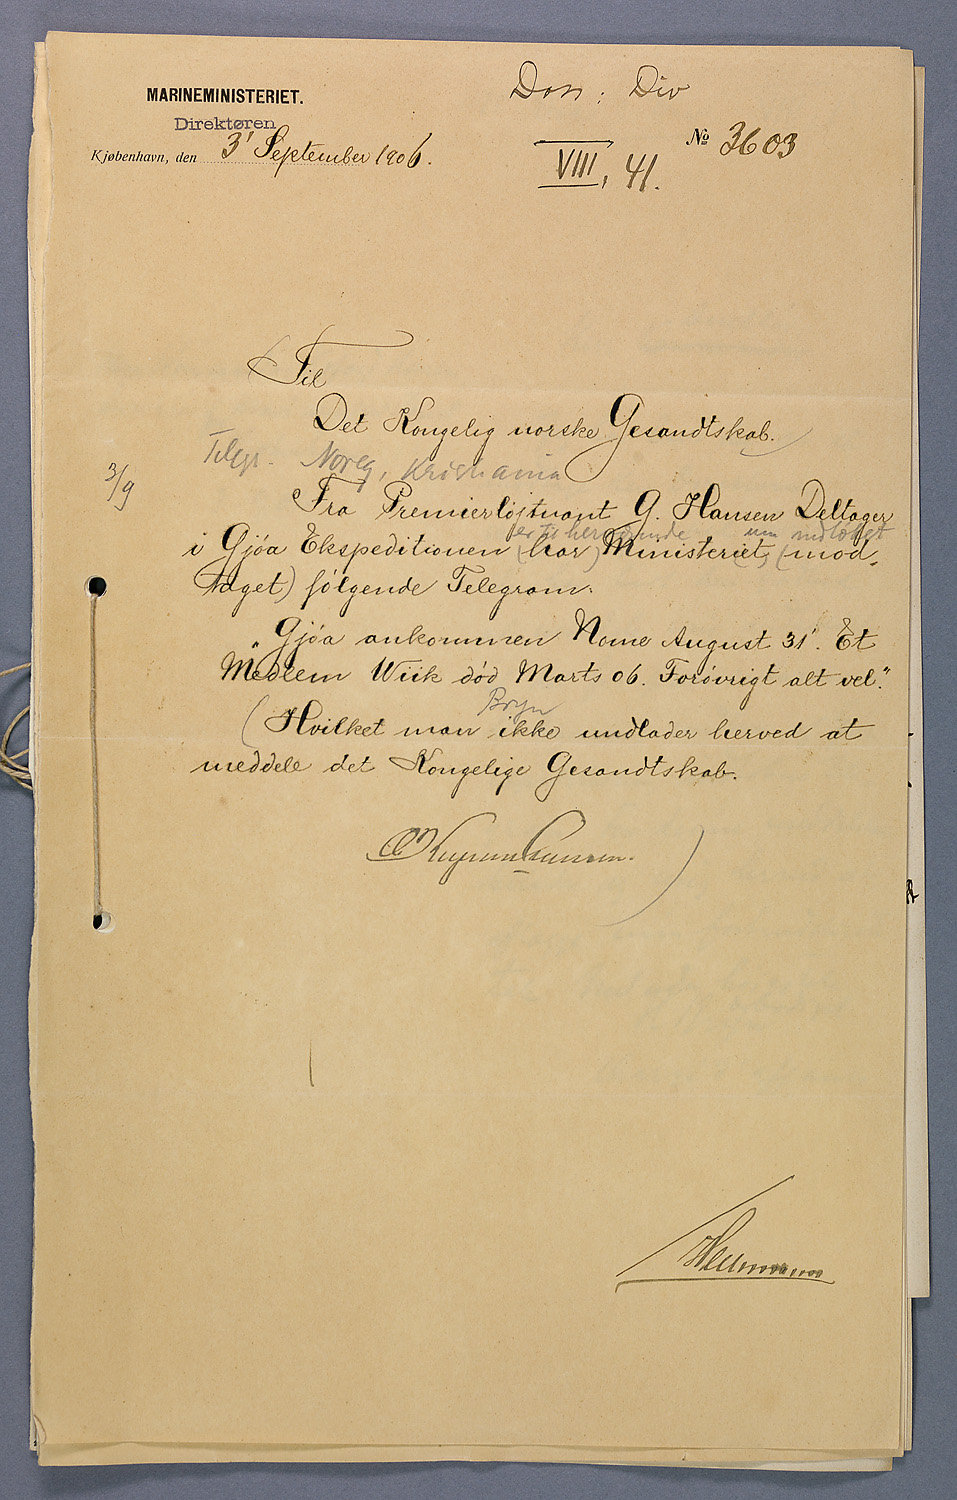 MARINEMINISTERIET.
Direktøren
Kjøbenhavn, den 3' September 1906.
Doss: Div
VIII, 41.
№ 3603
Til
Det Kongelig norske Gesandtskab.
Telegr. Noreg, Kristiania
3/9
Fra Premierløjtnant G. Hansen Deltager
er til herværende indløbet
i Gjöa Ekspeditionen (har) Ministeriet, (mod,
taget) følgende Telegram:
"Gjöa ankommen Nome August 31'. Et
Medlem Wiik død Marts 06. Forøvrigt alt vel."
Bryn
(Hvilket man ikke undlader herved at
meddele det Kongelige Gesandtskab.
)